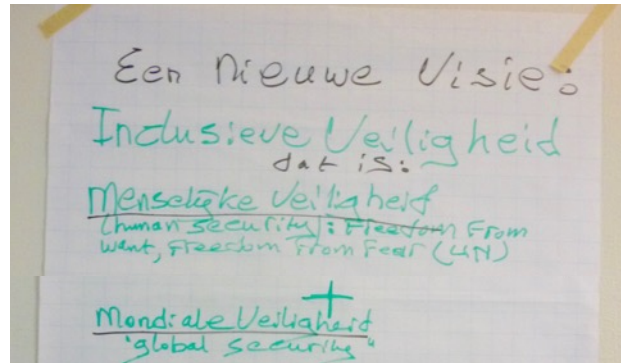 Een nieuwe Visie:
Inclusieve Veiligheid
dat is:
Menselijke Veiligheid
(human security): Freedom From
want, Freedom From Fear (UN)
+
Mondiale Veiligheid
"global security"